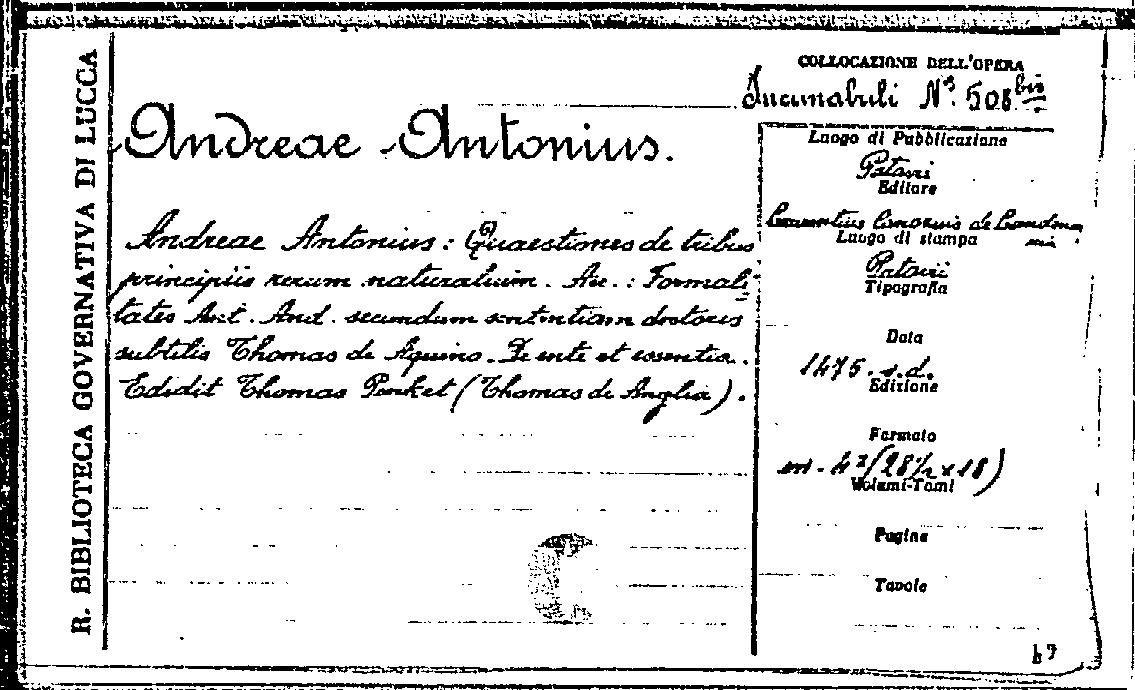 R. BIBLIOTECA GOVERNATIVA DI LUCCA
COLLOCAZIONE DELL'OPERA
Incunabuli N.º 508 bis
Andreae Antonius.
Andreae Antonius: Quaestiones de tribus
principiis rerum naturalium. Acc.: Formali-
tates Ant. And. secundum sententiam doctoris
subtilis Thomas de Aquino. De ente et essentia.
Edidit Thomas Penket (Thomas de Anglia).
Luogo di Pubblicazione
Patavi
Editore
Laurentius Canozius de
Luogo di stampa
Patavii
Tipografia
Data
1475. s.d.
Edizione
Formato
in-4º (28½ x 18)
Volumi-Tomi
Pagine
Tavole